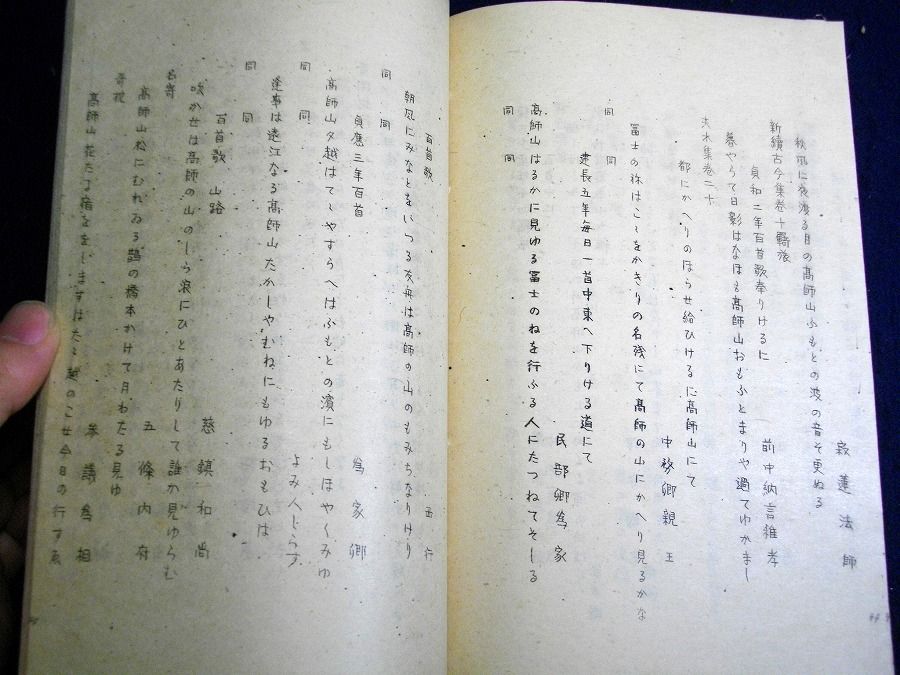 寂蓮法師
秋風に夜渡る月の高師山ふもとの波の音そ更ぬる
新續古今集巻十羇旅
貞和二年百首歌奉りけるに 前中納言雅孝
暮やらて日影はなほも高師山おもふとまりや過てゆかまし
夫木集巻二十
都にかへりのほらせ給ひけるに高師山にて 中務卿親王
冨士の祢はこゝをかきりの名残にて高師の山にかへり見るかな
同 同
建長五年毎日一首中東へ下りける道にて 民部卿為家
高師山はるかに見ゆる冨士のねを行ふる人にたつねてそしる
同 同
百首歌 西行
朝風にみなとをいつる友舟は高師の山のもみちなりけり
同 同
貞應三年百首 為家卿
高師山夕越はてゝやすらへはふもとの濱にもしほやくみゆ
同 同 よみ人しらす
逢事は遠江なる高師山たかしやむねにもゆるおもひは
同 同
百首歌 山路 慈鎮和尚
吹かせは高師の山のしら浪にひとあたりして誰か見ゆらむ
名寄 五條内府
高師山松にむれゐる鵲の橋本かけて月わたる見ゆ
参議為相
高師山花た
今日の行すゑ